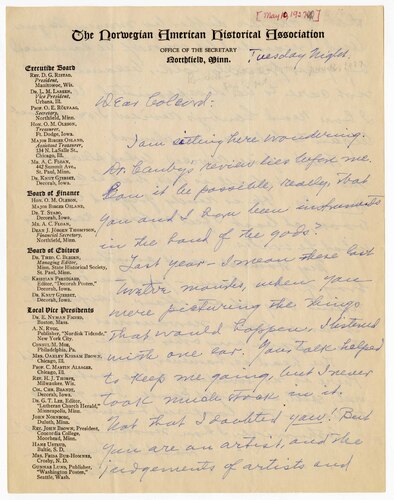 [May 10, 1927]
The Norwegian American Historical Association
OFFICE OF THE SECRETARY
Northfield, Minn.
Tuesday Night.
Executive Board
REV. D. G. RISTAD,
President,
Manitowoc, Wis.
DR. L. M. LARSON,
Vice President,
Urbana, Ill.
PROF. O. E. RÖLVAAG,
Secretary,
Northfield, Minn.
HON. O. M. OLESON,
Treasurer,
Ft. Dodge, Iowa.
MAJOR BIRGER OSLAND,
Assistant Treasurer,
134 N. LaSalle St.,
Chicago, Ill.
MR. A. C. FLOAN,
442 Summit Ave.,
St. Paul, Minn.
DR. KNUT GJERSET,
Decorah, Iowa.
Board of Finance
HON. O. M. OLESON,
MAJOR BIRGER OSLAND,
DR. T. STABO,
Decorah, Iowa.
MR. A. C. FLOAN,
DEAN J. JÖRGEN THOMPSON,
Financial Secretary,
Northfield, Minn.
Board of Editors
DR. THEO. C. BLEGEN,
Managing Editor,
Minn. State Historical Society,
St. Paul, Minn.
KRISTIAN PRESTGARD,
Editor, "Decorah Posten,"
Decorah, Iowa.
DR. KNUT GJERSET,
Decorah, Iowa.
Local Vice Presidents
Boston, Mass.
A. N. RYGG,
Publisher, "Nordisk Tidende,"
New York City.
Philadelphia, Pa.
MRS. OAKLEY KISSAM BROWN,
Chicago, Ill.
Chicago, Ill.
Milwaukee, Wis.
CHR. CHR. BRANDT,
Decorah, Iowa.
DR. G. T. LEE, Editor,
"Lutheran Church Herald,"
Minneapolis, Minn.
Duluth, Minn.
REV. JOHN BROWN, President,
Concordia College,
Moorhead, Minn.
HANS USTRUD,
Baltic, S. D.
MRS. FRIDA BUE-HOMNES,
Crosby, N. D.
GUNNAR LUND, Publisher,
"Washington Posten,"
Seattle, Wash.
Dear Colcord:
I am sitting here wondering.
Dr. Canby's review lies before me.
Can it be possible, really, that
you and I have been instruments
in the hand of the gods?
Last year – I mean these last
twelve months, when you
were picturing the things
that would happen, I listened
with one ear. Your talk helped
to keep me going, but I never
took much stock in it.
Not that I doubted you! But
you are an artist, and the
judgements of artists and